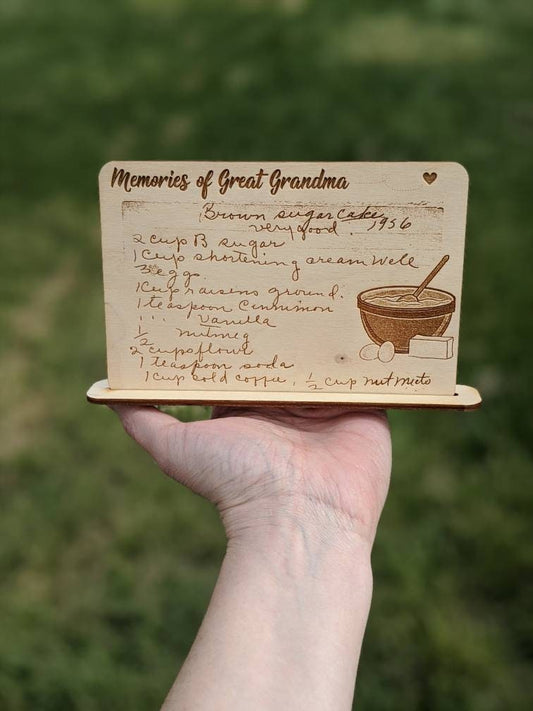 Memories of Great Grandma
Brown sugar Cake
very good. 1956
2 cup B sugar
1 Cup shortening cream Well
3 eggs.
1 Cup raisins ground.
1 teaspoon Cinnimon
" " Vanilla
1/2 nutmeg
2 cups flour
1 teaspoon soda
1 cup cold coffee, 1/2 cup nut